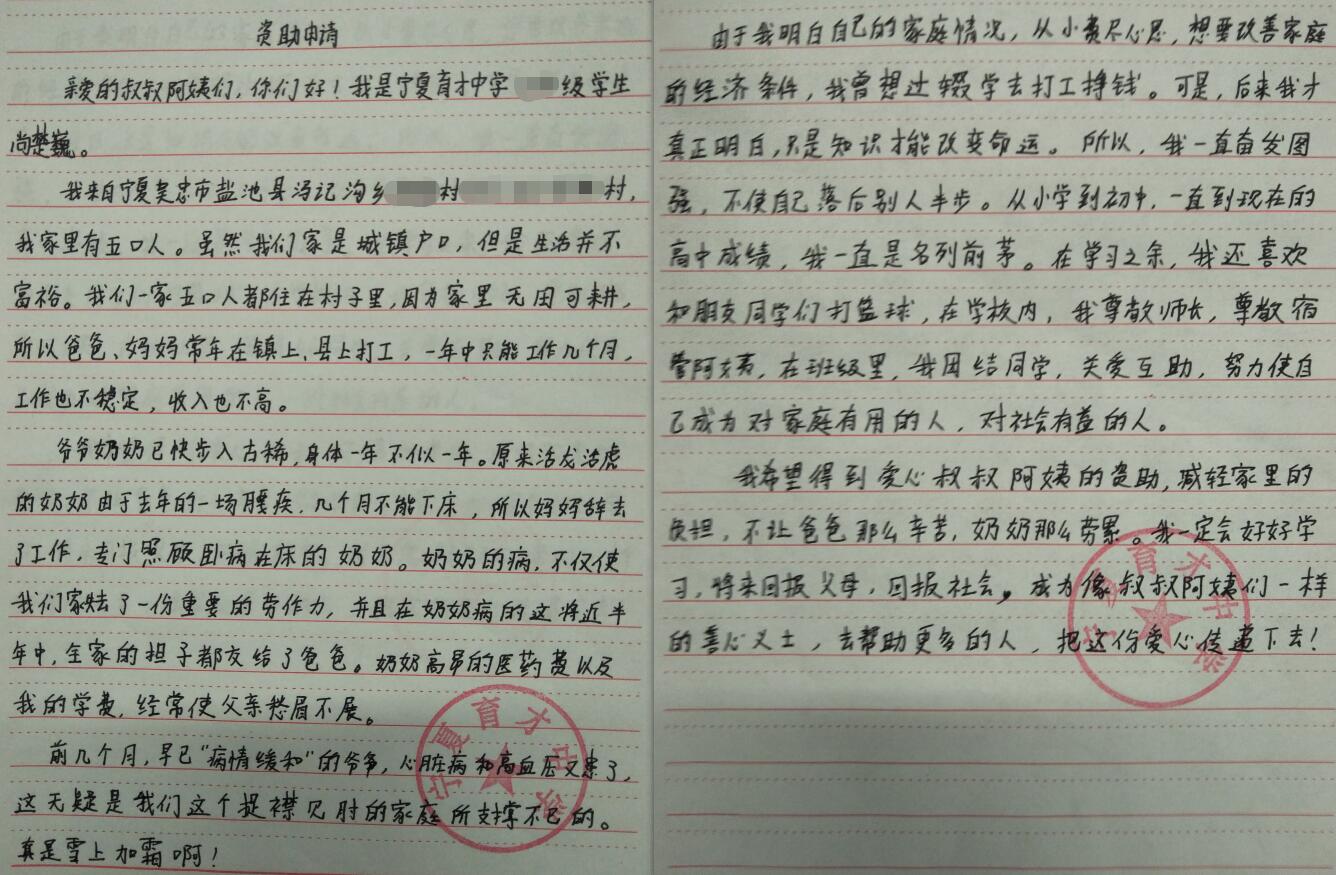 资助申请
亲爱的叔叔阿姨们，你们好！我是宁夏育才中学 级学生
尚楚巍。
我来自宁夏吴忠市盐池县冯记沟乡 村 村，
我家里有五口人。虽然我们家是城镇户口，但是生活并不
富裕。我们一家五口人都住在村子里，因为家里无田可耕，
所以爸爸、妈妈常年在镇上、县上打工，一年中只能工作几个月，
工作也不稳定，收入也不高。
爷爷奶奶已快步入古稀，身体一年不似一年。原来活龙活虎
的奶奶由于去年的一场腰疾，几个月不能下床，所以妈妈辞去
了工作，专门照顾卧病在床的奶奶。奶奶的病，不仅使
我们家失去了一份重要的劳作力，并且在奶奶病的这将近半
年中，全家的担子都交给了爸爸。奶奶高昂的医药费以及
我的学费，经常使父亲愁眉不展。
前几个月，早已“病情缓和”的爷爷，心脏病和高血压又患了，
这无疑是我们这个捉襟见肘的家庭所支撑不已的。
真是雪上加霜啊！
宁夏育才中学
由于我明白自己的家庭情况，从小费尽心思，想要改善家庭
的经济条件，我曾想过辍学去打工挣钱。可是，后来我才
真正明白，只是知识才能改变命运。所以，我一直奋发图
强，不使自己落后别人半步。从小学到初中，一直到现在的
高中成绩，我一直是名列前茅。在学习之余，我还喜欢
和朋友同学们打篮球，在学校内，我尊敬师长，尊敬宿
管阿姨，在班级里，我团结同学，关爱互助，努力使自
己成为对家庭有用的人，对社会有益的人。
我希望得到爱心叔叔阿姨的资助，减轻家里的
负担，不让爸爸那么辛苦，奶奶那么劳累。我一定会好好学
习，将来回报父母，回报社会，成为像叔叔阿姨们一样
的善心义士，去帮助更多的人，把这份爱心传递下去！
宁夏育才中学